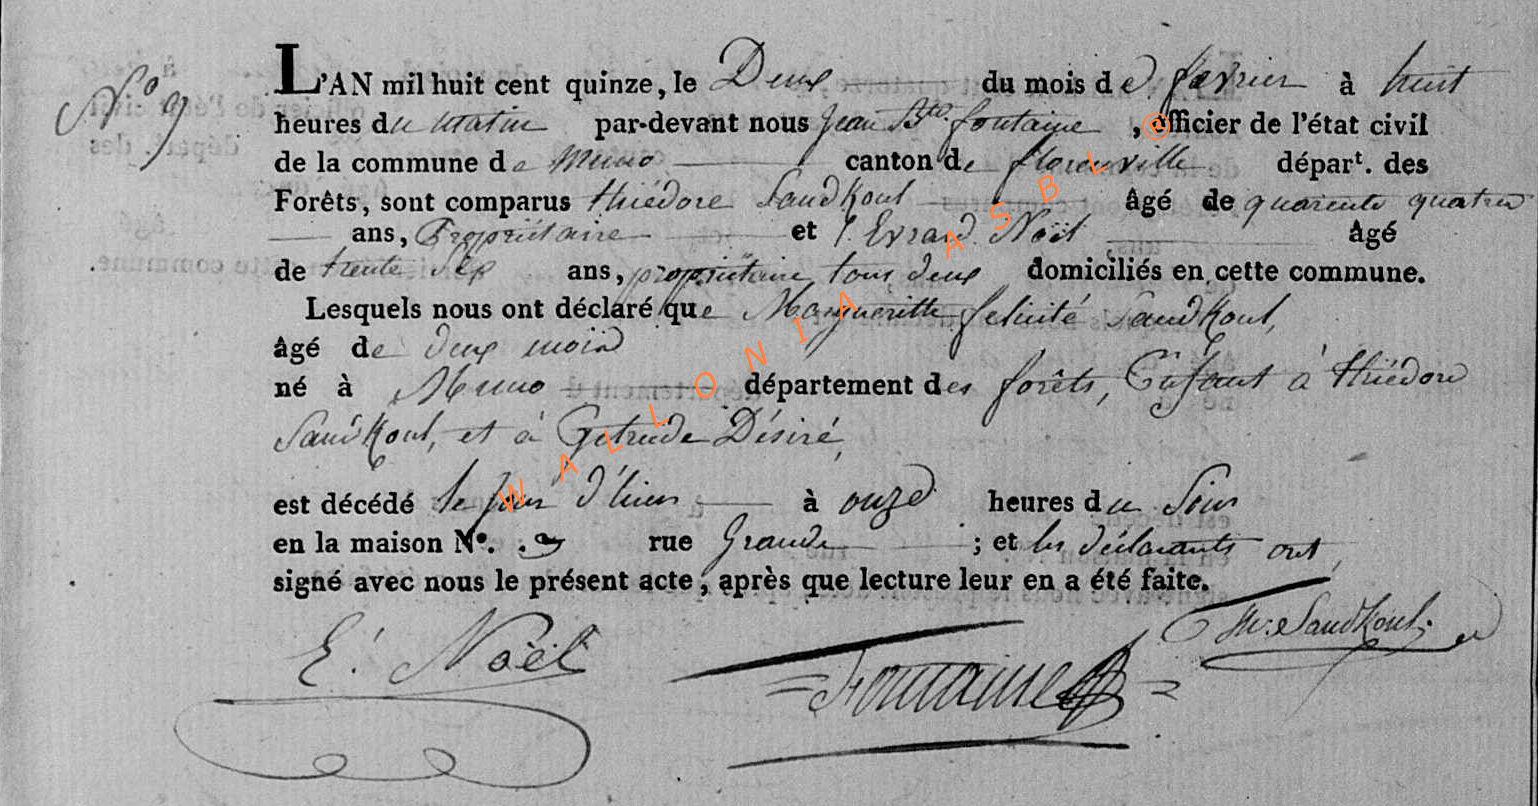 N.º 9
L'AN mil huit cent quinze, le Deux du mois de fevrier à huit
heures du matin par-devant nous Jean Bte. fontaine, officier de l'état civil
de la commune de Muno canton de florenville départ. des
Forêts, sont comparus thiédore SandKoul âgé de quarente quatre
ans, Propriétaire et Evrard Noël âgé
de trente Six ans, propriétaire tous deux domiciliés en cette commune.
Lesquels nous ont déclaré que Margueritte felicité SandKoul,
âgé de deux mois
né à Muno département des forêts, Enfant à thiédore
SandKoul, et à Getrude Désiré,
est décédé le jour d'hier à onze heures du Soir
en la maison Nº. rue Grande ; et les déclarants ont,
signé avec nous le présent acte, après que lecture leur en a été faite.
E. Noël
Fontaine
Th. SandKoul.
© WALLONIA ASBL